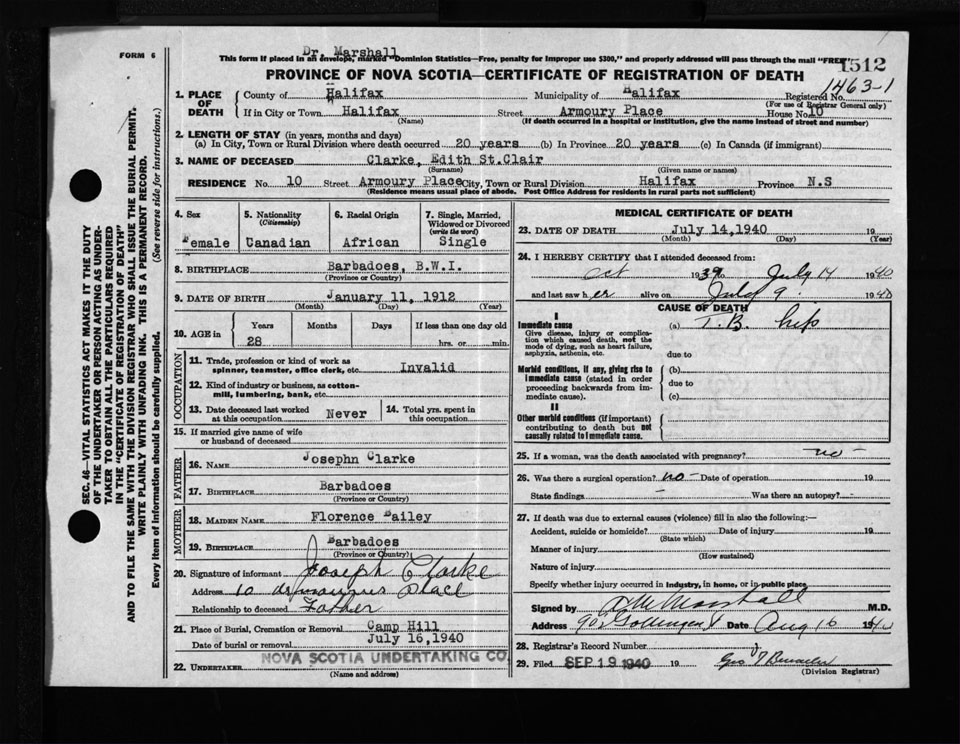 FORM 6
Dr. Marshall
This form if placed in an envelope, marked "Dominion Statistics—Free, penalty for improper use $300," and properly addressed will pass through the mail "FREE"
1512
PROVINCE OF NOVA SCOTIA—CERTIFICATE OF REGISTRATION OF DEATH
1463-1
1. PLACE OF DEATH
County of Halifax Municipality of Halifax Registered No.
(For use of Registrar General only)
If in City or Town Halifax Street Armoury Place House No. 10
(Name) (If death occurred in a hospital or institution, give the name instead of street and number)
2. LENGTH OF STAY (in years, months and days)
(a) In City, Town or Rural Division where death occurred 20 years (b) In Province 20 years (c) In Canada (if immigrant)
3. NAME OF DECEASED Clarke, Edith St.Clair
(Surname) (Given name or names)
RESIDENCE No. 10 Street Armoury Place City, Town or Rural Division Halifax Province N.S
(Residence means usual place of abode. Post Office Address for residents in rural parts not sufficient)
4. Sex Female
5. Nationality (Citizenship) Canadian
6. Racial Origin African
7. Single, Married, Widowed or Divorced (write the word) Single
8. BIRTHPLACE Barbadoes, B.W.I.
(Province or Country)
9. DATE OF BIRTH January 11, 1912
(Month) (Day) (Year)
10. AGE in Years Months Days If less than one day old
28 hrs. or min.
OCCUPATION
11. Trade, profession or kind of work as spinner, teamster, office clerk, etc. Invalid
12. Kind of industry or business, as cotton-mill, lumbering, bank, etc.
13. Date deceased last worked at this occupation Never
14. Total yrs. spent in this occupation
15. If married give name of wife or husband of deceased
FATHER
16. NAME Josephn Clarke
17. BIRTHPLACE Barbadoes
(Province or Country)
MOTHER
18. MAIDEN NAME Florence Bailey
19. BIRTHPLACE Barbadoes
(Province or Country)
20. Signature of informant Joseph Clarke
Address 10 Place
Relationship to deceased Father
21. Place of Burial, Cremation or Removal Camp Hill
Date of burial or removal July 16,1940
22. UNDERTAKER NOVA SCOTIA UNDERTAKING CO.
(Name and address)
MEDICAL CERTIFICATE OF DEATH
23. DATE OF DEATH July 14,1940 19
(Month) (Day) (Year)
24. I HEREBY CERTIFY that I attended deceased from:
Oct 1939 to July 14 1940
and last saw her alive on July 9 1940
CAUSE OF DEATH
I
Immediate cause
Give disease, injury or complication which caused death, not the mode of dying, such as heart failure, asphyxia, asthenia, etc.
(a) T.B. hip
due to
Morbid conditions, if any, giving rise to immediate cause (stated in order proceeding backwards from immediate cause).
(b)
due to
(c)
II
Other morbid conditions (if important) contributing to death but not causally related to immediate cause.
25. If a woman, was the death associated with pregnancy? no -
26. Was there a surgical operation? no - Date of operation 19
State findings - Was there an autopsy? -
27. If death was due to external causes (violence) fill in also the following:—
Accident, suicide or homicide? Date of injury 19
(State which)
Manner of injury
(How sustained)
Nature of injury
Specify whether injury occurred in industry, in home, or in public place
Signed by Marshall M.D.
Address Date Aug 16 1940
28. Registrar's Record Number
29. Filed SEP 19 1940 19
(Division Registrar)
SEC. 46—VITAL STATISTICS ACT MAKES IT THE DUTY
OF THE UNDERTAKER OR PERSON ACTING AS UNDER-
TAKER TO OBTAIN ALL THE PARTICULARS REQUIRED
IN THE "CERTIFICATE OF REGISTRATION OF DEATH"
AND TO FILE THE SAME WITH THE DIVISION REGISTRAR WHO SHALL ISSUE THE BURIAL PERMIT.
WRITE PLAINLY WITH UNFADING INK. THIS IS A PERMANENT RECORD.
Every item of information should be carefully supplied. (See reverse side for instructions.)